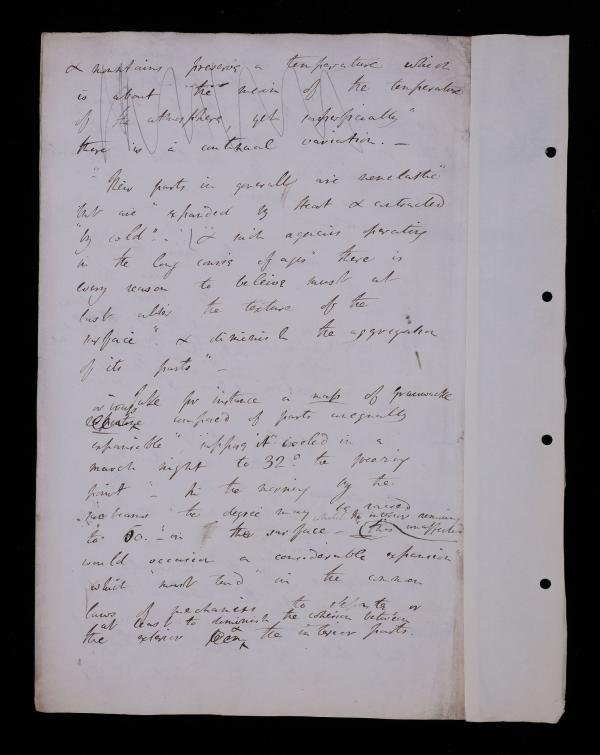 & mountains preserve a temperature which
is about "the mean of the temperature
of the atmosphere, yet superficially"
there is a continual variation. —
"Their parts in general are nonelastic"
but are "expanded by Heat & contracted
"by cold" - . "& such agencies operating
in the long course of ages" there is
every reason to beleive must at
last alter the texture of the
surface" & diminish the aggregation
of its parts" —
— Take for instance a mass of Grauwacke
or composed of parts unequally
expansible" suppose it cooled in a
march night to 32° the freezing
point" — In the morning by the
the degree may be raised
while the interior remains
to 50. — " on the surface — (this unaffected
would occasion a considerable expansion"
which "must tend" on the common
laws of mechanics to separate or
at least to diminish the cohesion between
the exterior & the interior parts.